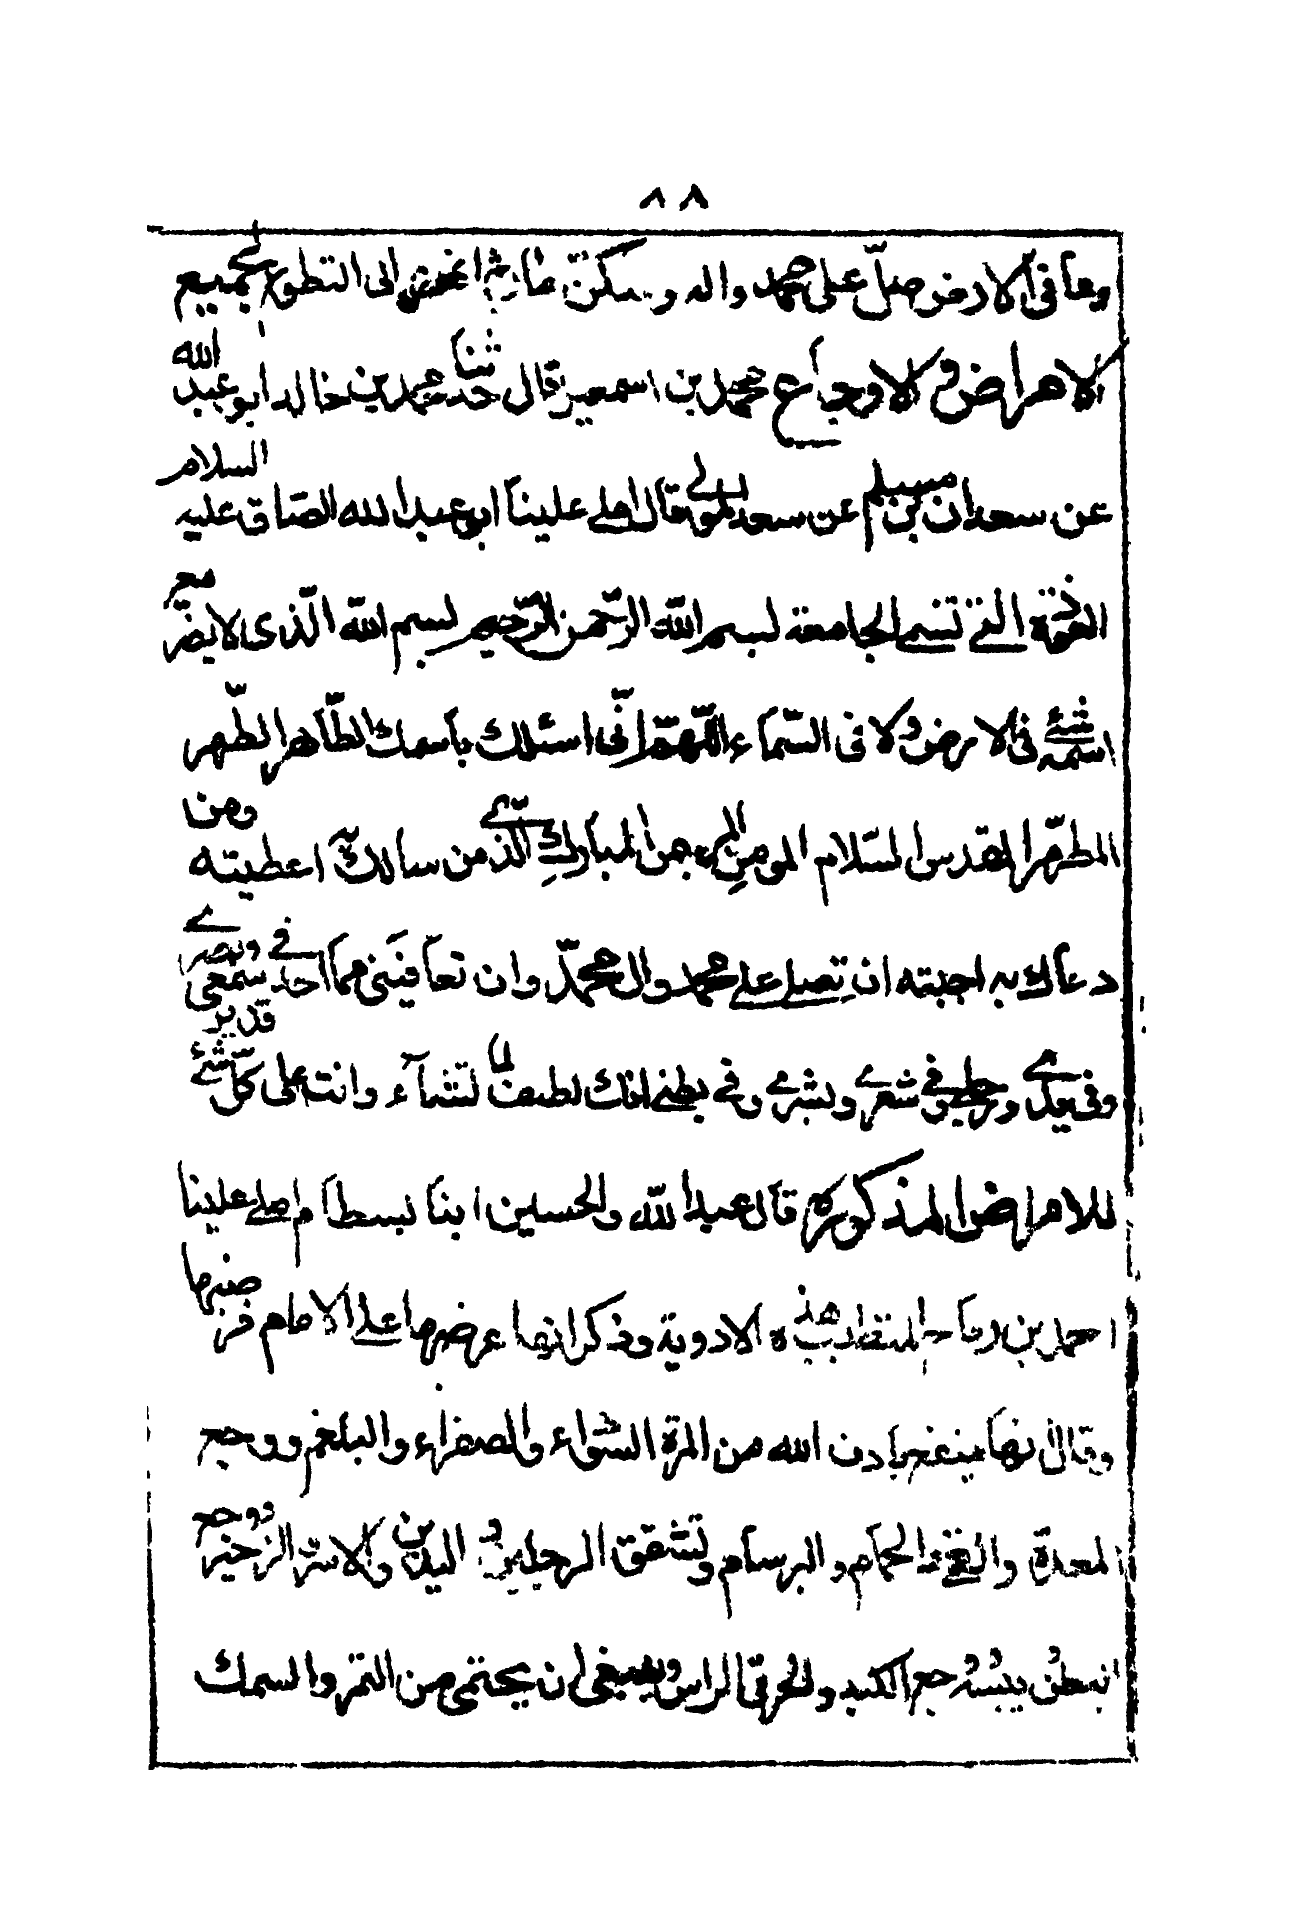 ٨٨
وما فى الارض صلّ على محمد واله وسكن الى التطوع لجميع
الامراض و الاوجاع محمد بن اسمعيل قال حدثنا محمد بن خالد ابو عبد الله
عن سعدان بن مسلم عن سعد المولى قال املى علينا ابو عبد الله الصادق عليه السلام
العوذة التى تسمى الجامعة بسم الله الرّحمن الرّحيم بسم الله الّذى لا يضرّ مع
اسمه شئ فى الارض ولا فى السّماء اللّهمّ انّى اسئلك باسمك الطّاهر الطّهر
المطهّر المقدس السّلام المومن المهيمن المبارك الذى من سالك اعطيته ومن
دعاك به اجبته ان تصلى على محمد وال محمّد وان تعافينى مما احد فى سمعى وبصرى
وفى يدى ورجلى وفى شعرى وبشرى وفى بطنى انك لطيف لما تشاء وانت على كلّ شئ قدير
للامراض المذكورة قال عبد الله والحسين ابنا بسطام املى علينا
احمد بن رياح المتطبب هذه الادوية وذكر انه عرضها على الامام فرضيها
وقال انها تنفع باذن الله من المرة السّوداء والصفراء والبلغم ووجع
المعدة والقئ والحمام والبرسام وتشقق الرجلين و اليدين والاسر والزحير ووجع
البطن ووجع الكبد والحر فى الراس وينبغى ان يحتمى من التمر والسمك